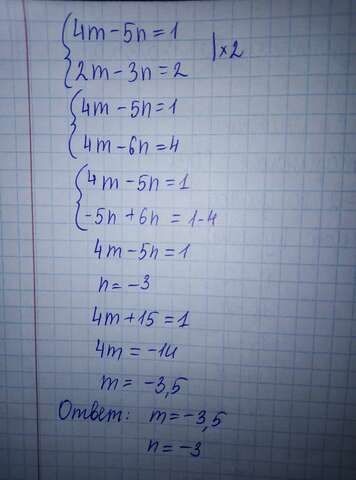 4m - 5n = 1
2m - 3n = 2 | ×2
4m - 5n = 1
4m - 6n = 4
4m - 5n = 1
-5n + 6n = 1 - 4
4m - 5n = 1
n = -3
4m + 15 = 1
4m = -14
m = -3,5
Ответ: m = -3,5
n = -3